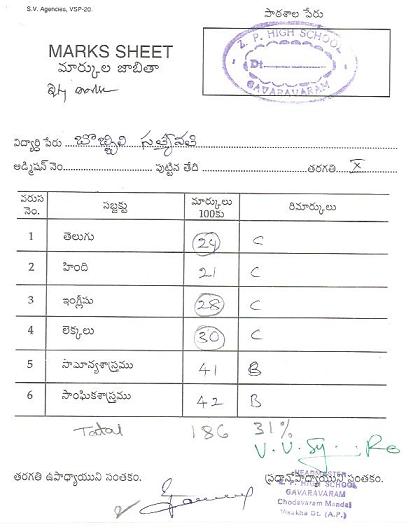 S.V. Agencies, VSP-20.
పాఠశాల పేరు
MARKS SHEET
మార్కుల జాబితా
Z. P. HIGH SCHOOL
Dt.
GAVARAVARAM
విద్యార్థి పేరు
అడ్మిషన్ నెం. పుట్టిన తేది తరగతి X
వరుస నెం. సబ్జక్టు మార్కులు 100కు రిమార్కులు
1 తెలుగు 24 C
2 హింది 21 C
3 ఇంగ్లీషు 28 C
4 లెక్కలు 30 C
5 సామాన్యశాస్త్రము 41 B
6 సాంఘికశాస్త్రము 42 B
Total 186 31%
తరగతి ఉపాధ్యాయుని సంతకం. ప్రధానోపాధ్యాయుని సంతకం.
HEADMASTER
Z. P. HIGH SCHOOL
GAVARAVARAM
Chodavaram Mandal
Visakha Dt. (A.P.)